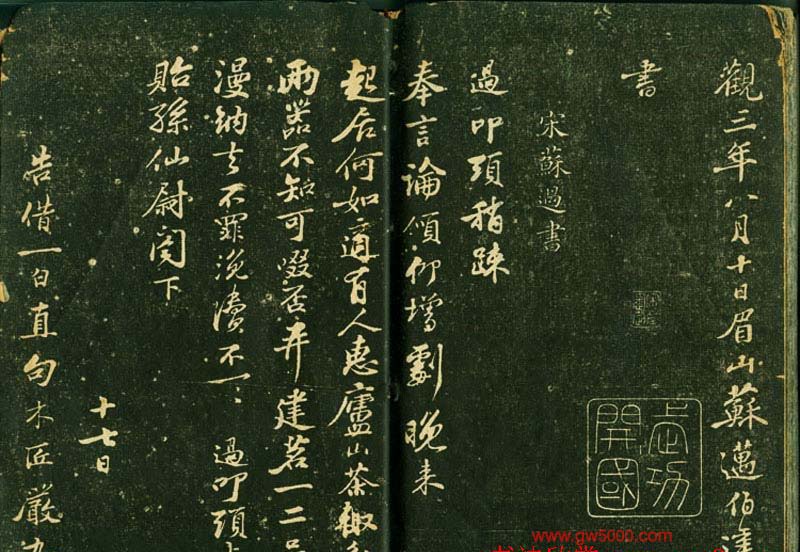 觀三年八月十日眉山蘇邁伯達
書
武功開國
宋蘇過書
過叩頭稍踈
奉言論傾仰增劇晚来
起居何如適有人惠廬山茶輙
兩器不知可啜否并建茗一二品
漫納去不罪浼凟不一〻 過叩頭
貽孫仙尉閤下
十七日
告借一白直勾木匠嚴
www.gw5000.com